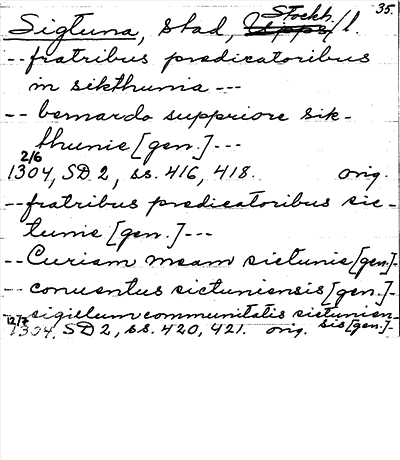 35.
Sigtuna, stad, Upps Stockh. /l.
-- fratribus predicatoribus
in sikthunia ---
-- bernardo suppriore sik-
thunie [gen.] ---
2/6
1304, SD 2, ss. 416, 418. orig.
-- fratribus predicatoribus sic-
tunie [gen.] ---
-- Curiam meam sictunie [gen.] -
-- conuentus sictuniensis [gen.] -
-- sigillum communitatis sictunien-
sis [gen.] -
12/7
1304, SD 2, ss. 420, 421. orig.